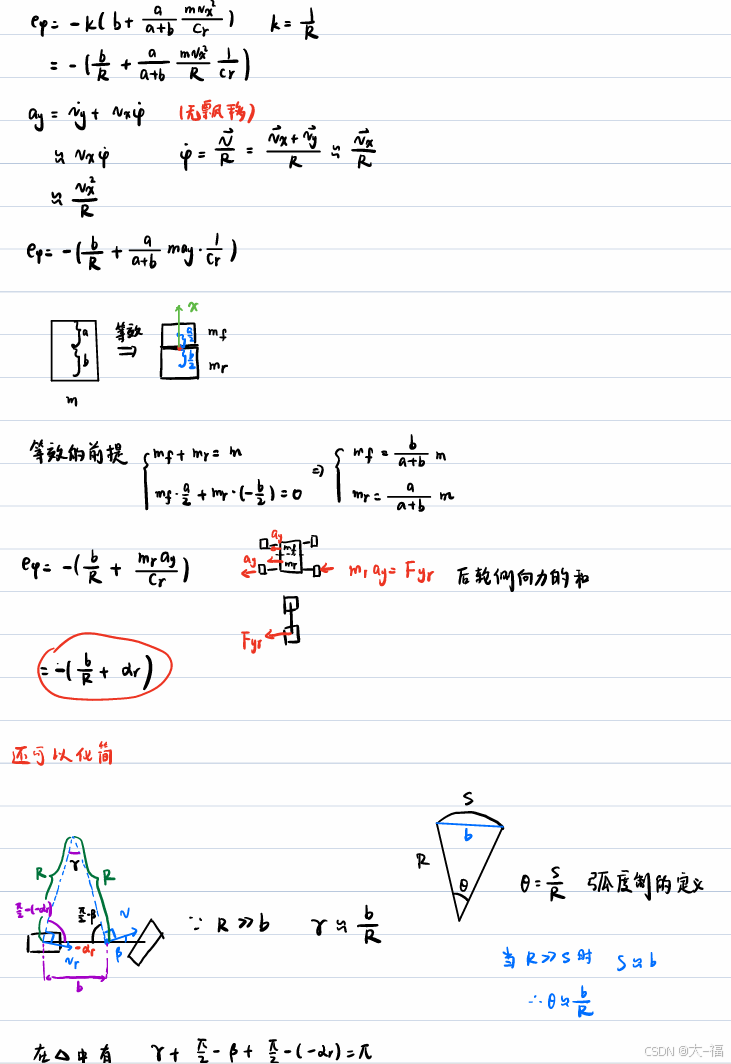 eφ = -k(b + a/(a+b) · mvx²/Cr)   k = 1/R
= -(b/R + a/(a+b) · mvx²/R · 1/Cr)
ay = v̇y + vxφ̇   (无飘移)
≈ vxφ̇   φ̇ = v⃗/R = (v⃗x + v⃗y)/R ≈ v⃗x/R
≈ vx²/R
eφ = -(b/R + a/(a+b) may · 1/Cr)
a b m 等效 ⇒ x a/2 b/2 mf mr
等效的前提 { mf + mr = m   ⇒ { mf = b/(a+b) m
mf · a/2 + mr · (-b/2) = 0   mr = a/(a+b) m
eφ = -(b/R + mr ay/Cr)   ay ay mf mr   mr ay = Fyr   后轮侧向力的和
Fyr
= -(b/R + αr)
还可以化简
S
b
R
θ   θ = S/R   弧度制的定义
γ
R R
π/2-(-αr)   π/2-β   v
-αr   vr   β
b
∵ R ≫ b   γ ≈ b/R
当 R ≫ S 时   S ≈ b
∴ θ ≈ b/R
在△中有   γ + π/2 - β + π/2 - (-αr) = π
CSDN @大-福